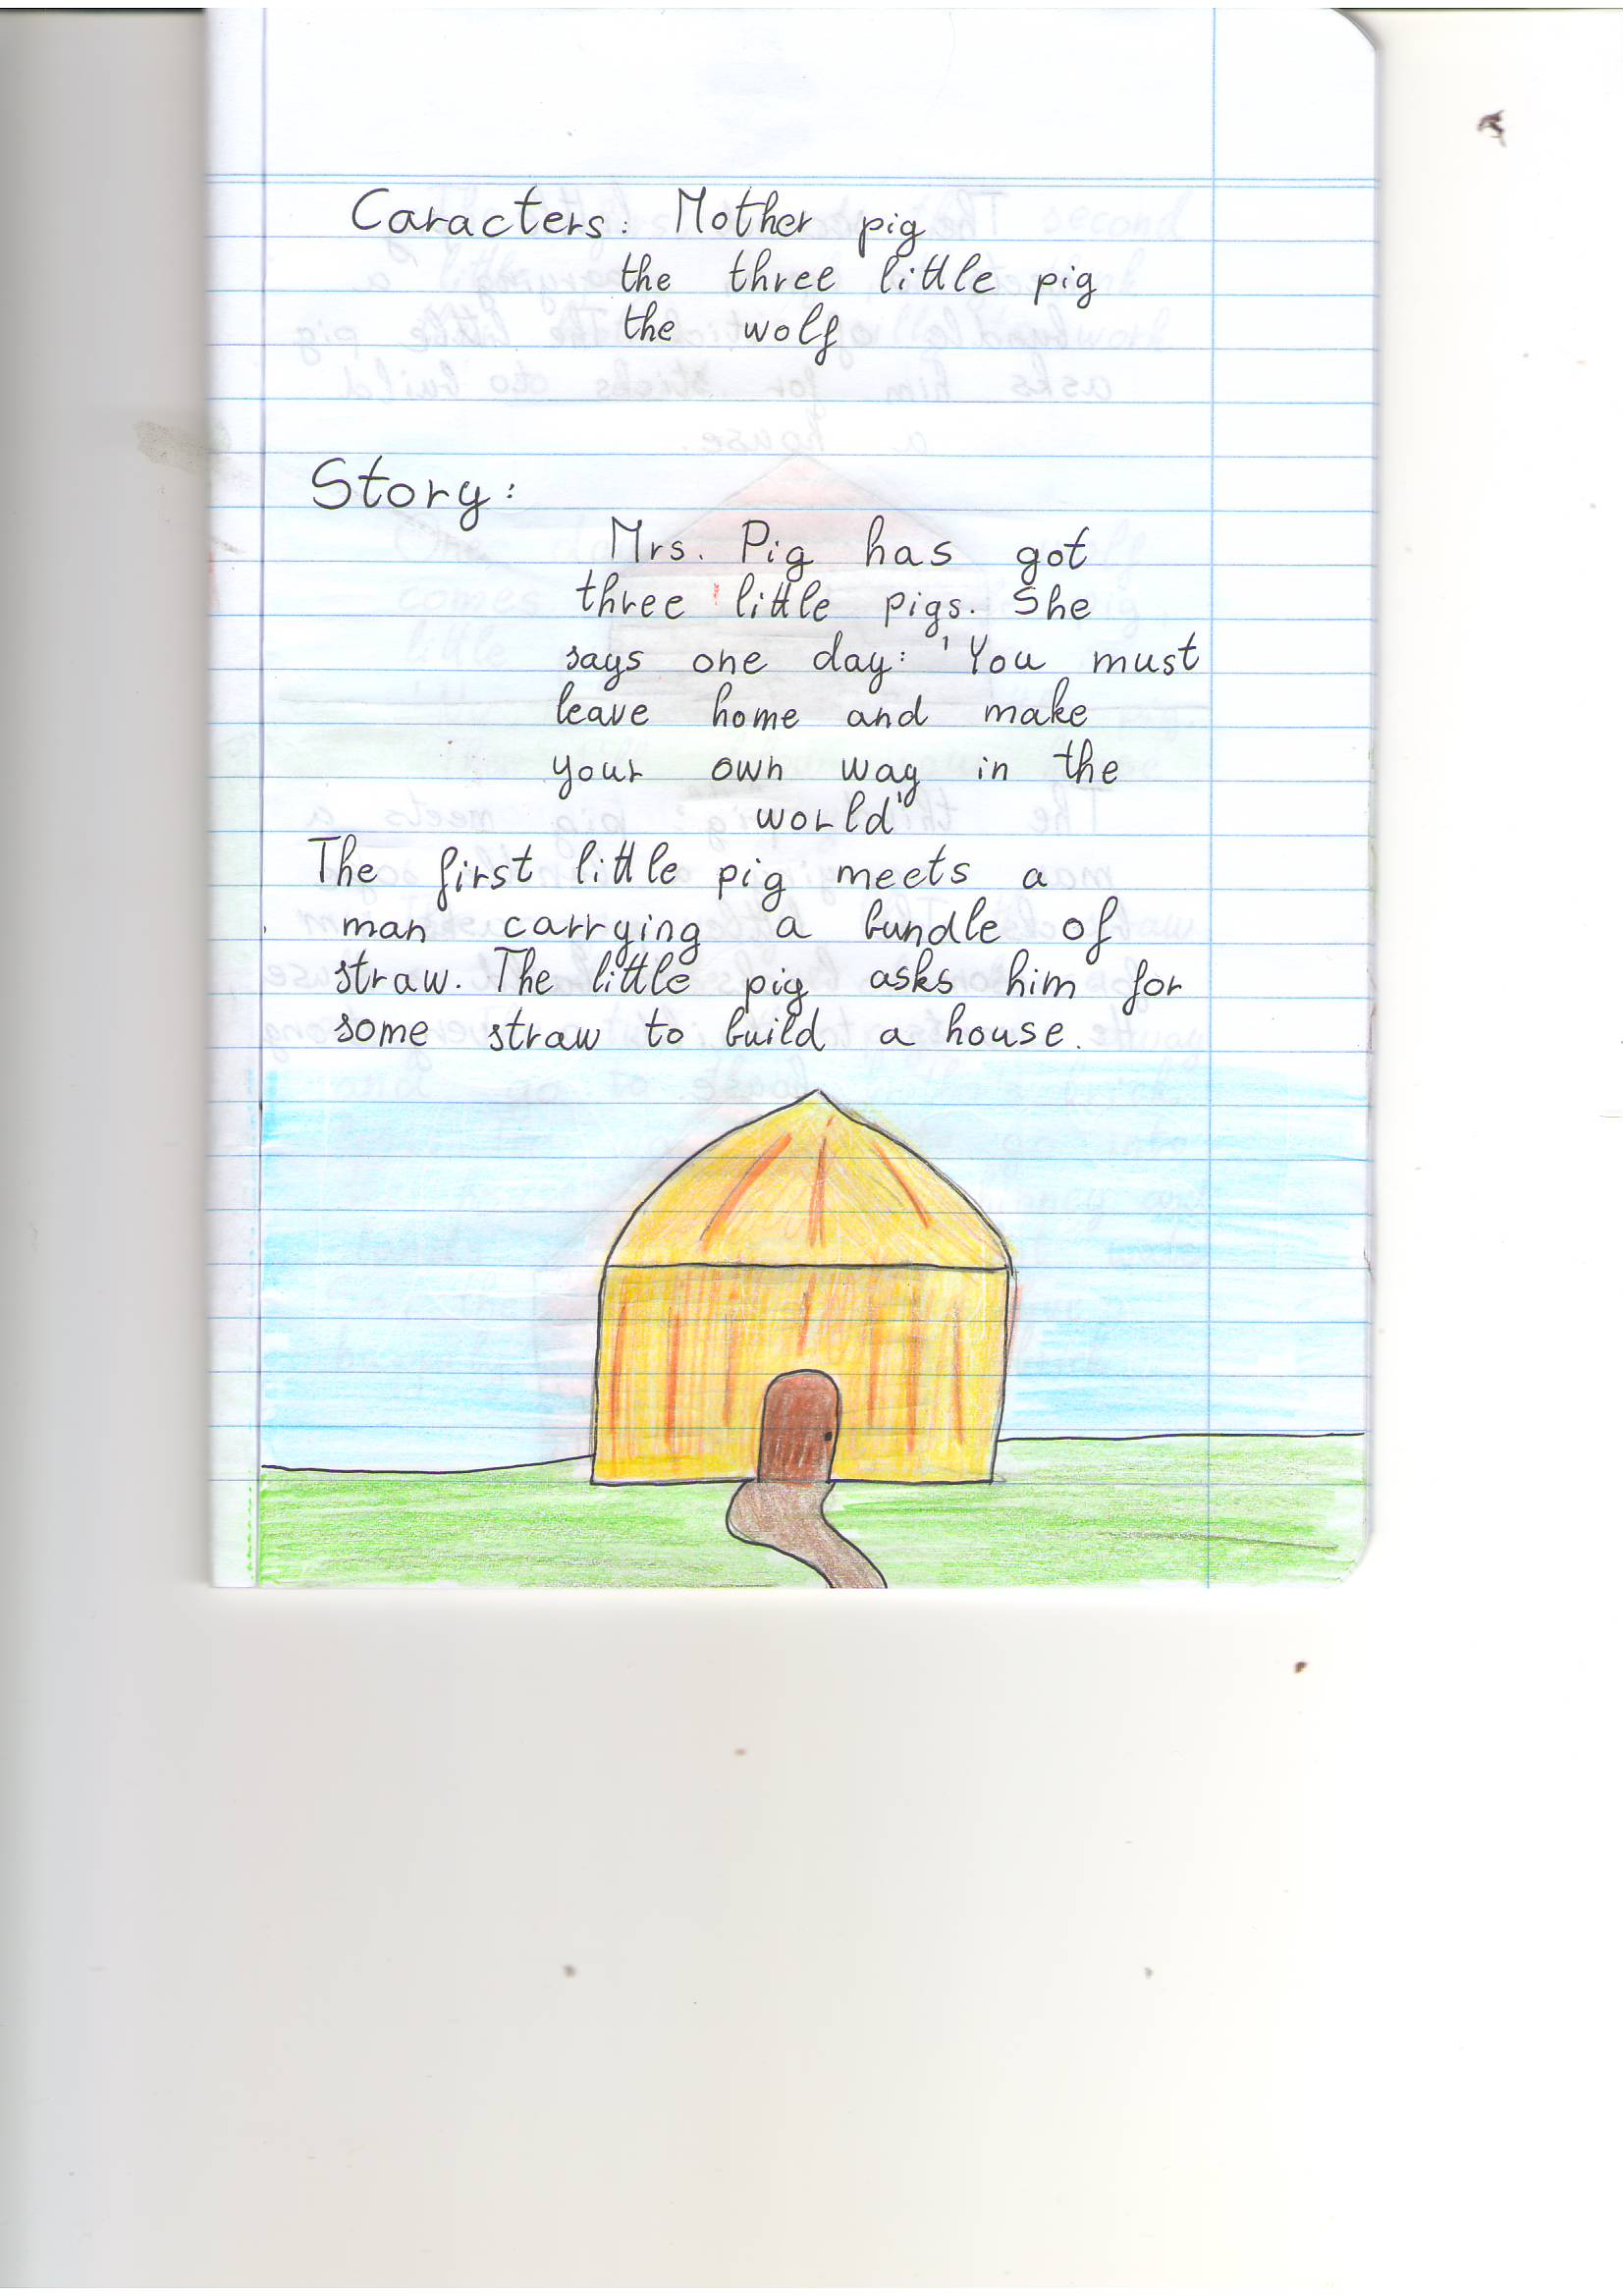 Caracters: Mother pig
the three little pig
the wolf
Story:
Mrs. Pig has got
three little pigs. She
says one day: 'You must
leave home and make
your own way in the
world'
The first little pig meets a
man carrying a bundle of
straw. The little pig asks him for
some straw to build a house.